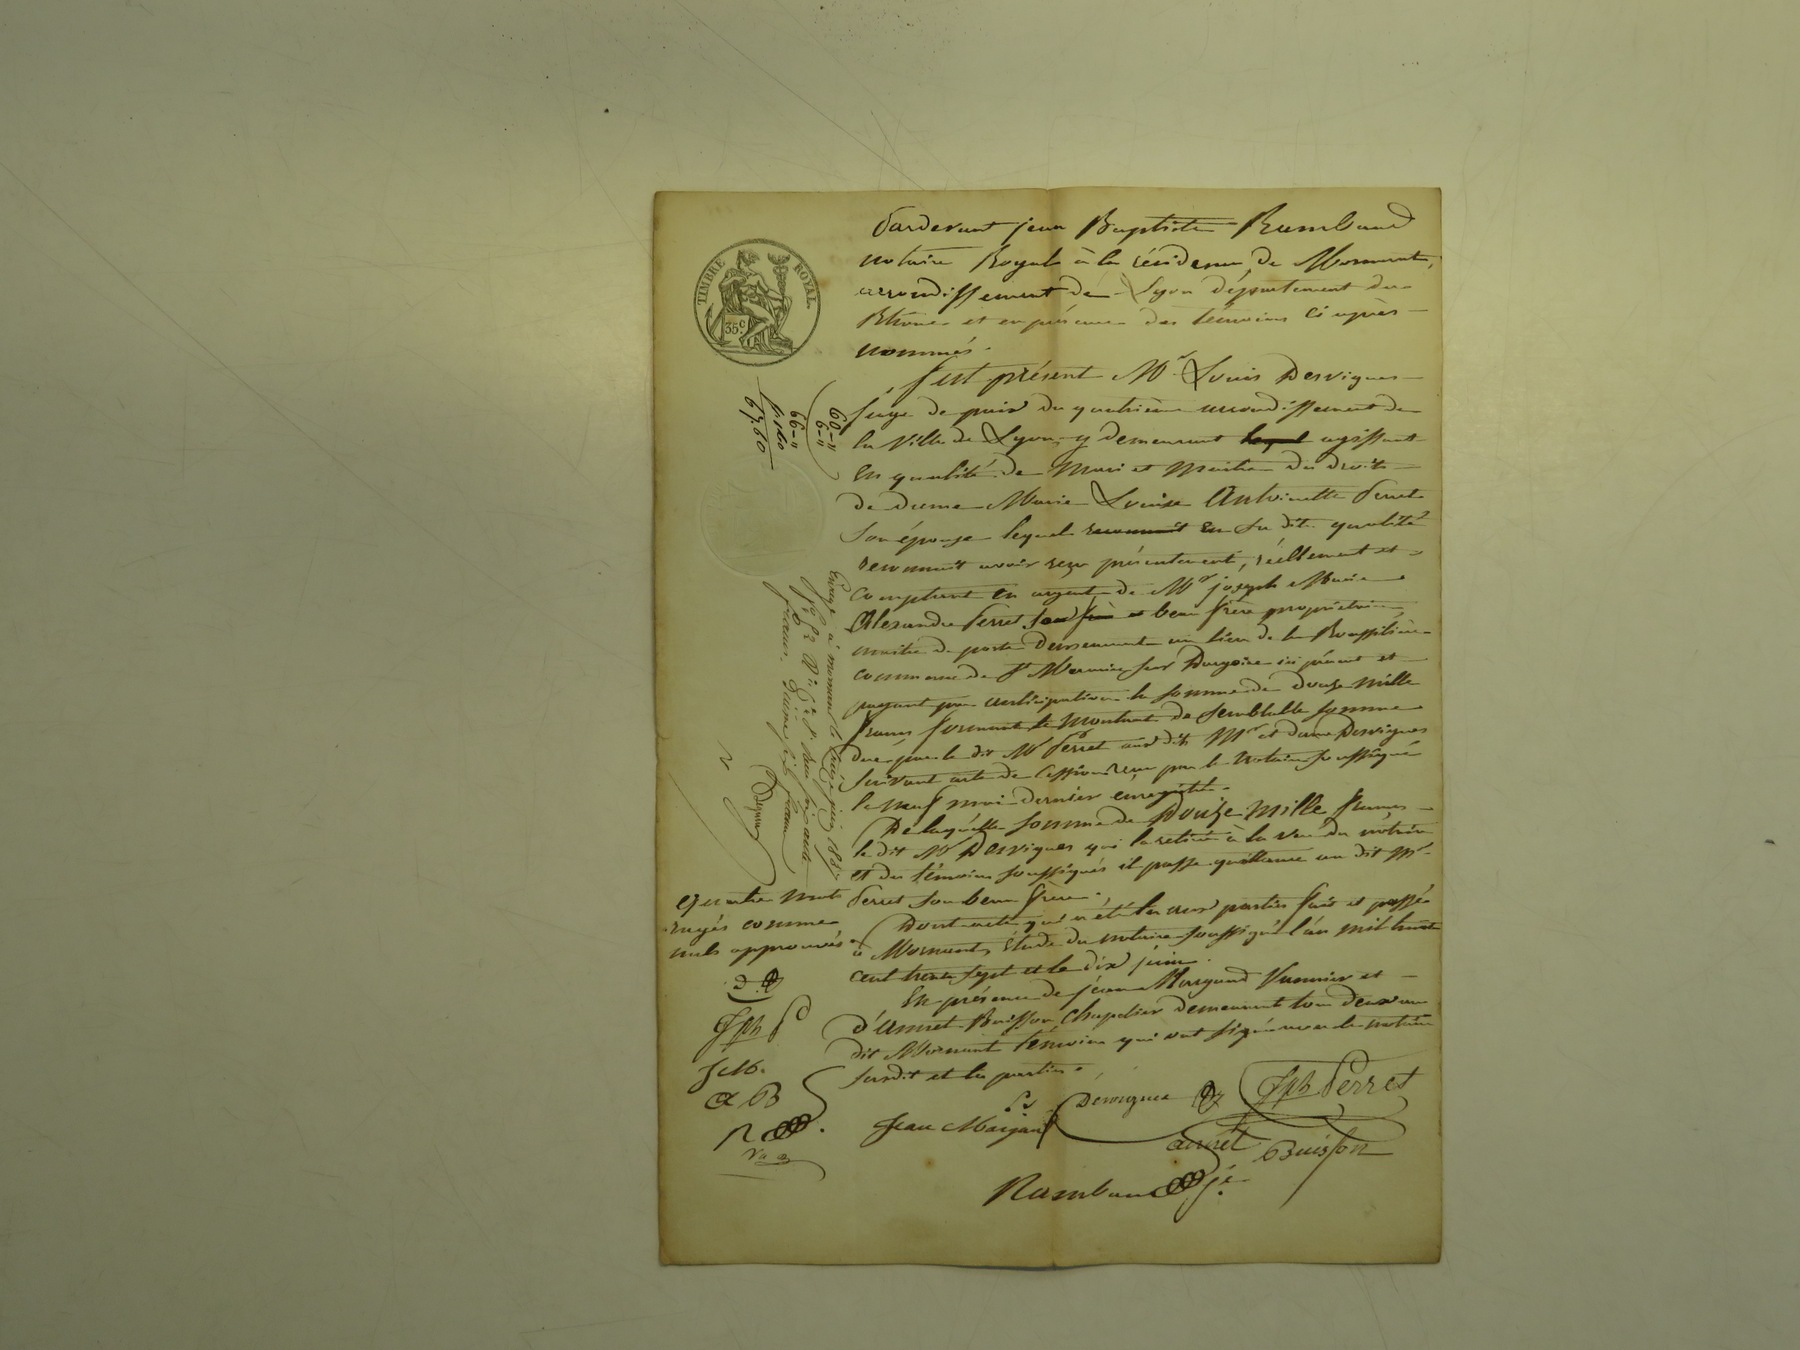 TIMBRE ROYAL
35c
Pardevant jean Baptiste Rambaud
notaire Royal à la résidence de Mornant,
arrondissement de Lyon département du
Rhône et en présence des témoins ci après
nommés.
fut présent Mr Louis Desvignes
juge de paix du quatrième arrondissement de
la ville de Lyon y demeurant lequel agissant
en qualité de Mari et Maitre des droits
de dame Marie Louise Antoinette Perret
son épouse lequel reconnait en sa dite qualité
reconnait avoir reçu présentement, réellement et
comptant en argent de Mr joseph Marie
Alexandre Perret son frère et beau frère propriétaire,
maitre de poste demeurant au lieu de la Roussilière
commune de St Maurice sur Dargoire ici présent et
payant par anticipation la somme de Douze Mille
francs formant le montant de semblable somme
due par le dit Mr Perret aux dits Mr et dame Desvignes
suivant acte de cession reçu par le notaire soussigné
le neuf mai dernier enregistré.
De laquelle somme de Douze Mille francs
le dit Mr Desvignes qui l'a retiré à la vue du notaire
et des témoins soussignés il passe quittance au dit Mr
Perret son beau frère.
Dont acte qui a été lu aux parties fait et passé
à Mornant, étude du notaire soussigné l'an mil huit
cent trente sept et le dix juin.
En présence de jean Margand Vannier et
d'Annet Buisson Chapelier demeurant tous deux au
dit Mornant témoins qui ont signé avec le notaire
susdit et les parties.
60-"
6-"
66-"
1,60
67,60
Enregé à mornant le treize juin 1837
francs
mots
rayés comme
nuls approuvés
Jph P
J M.
A B
R
Desvignes
Jph Perret
Jean Margand
annet Buisson
Rambaud